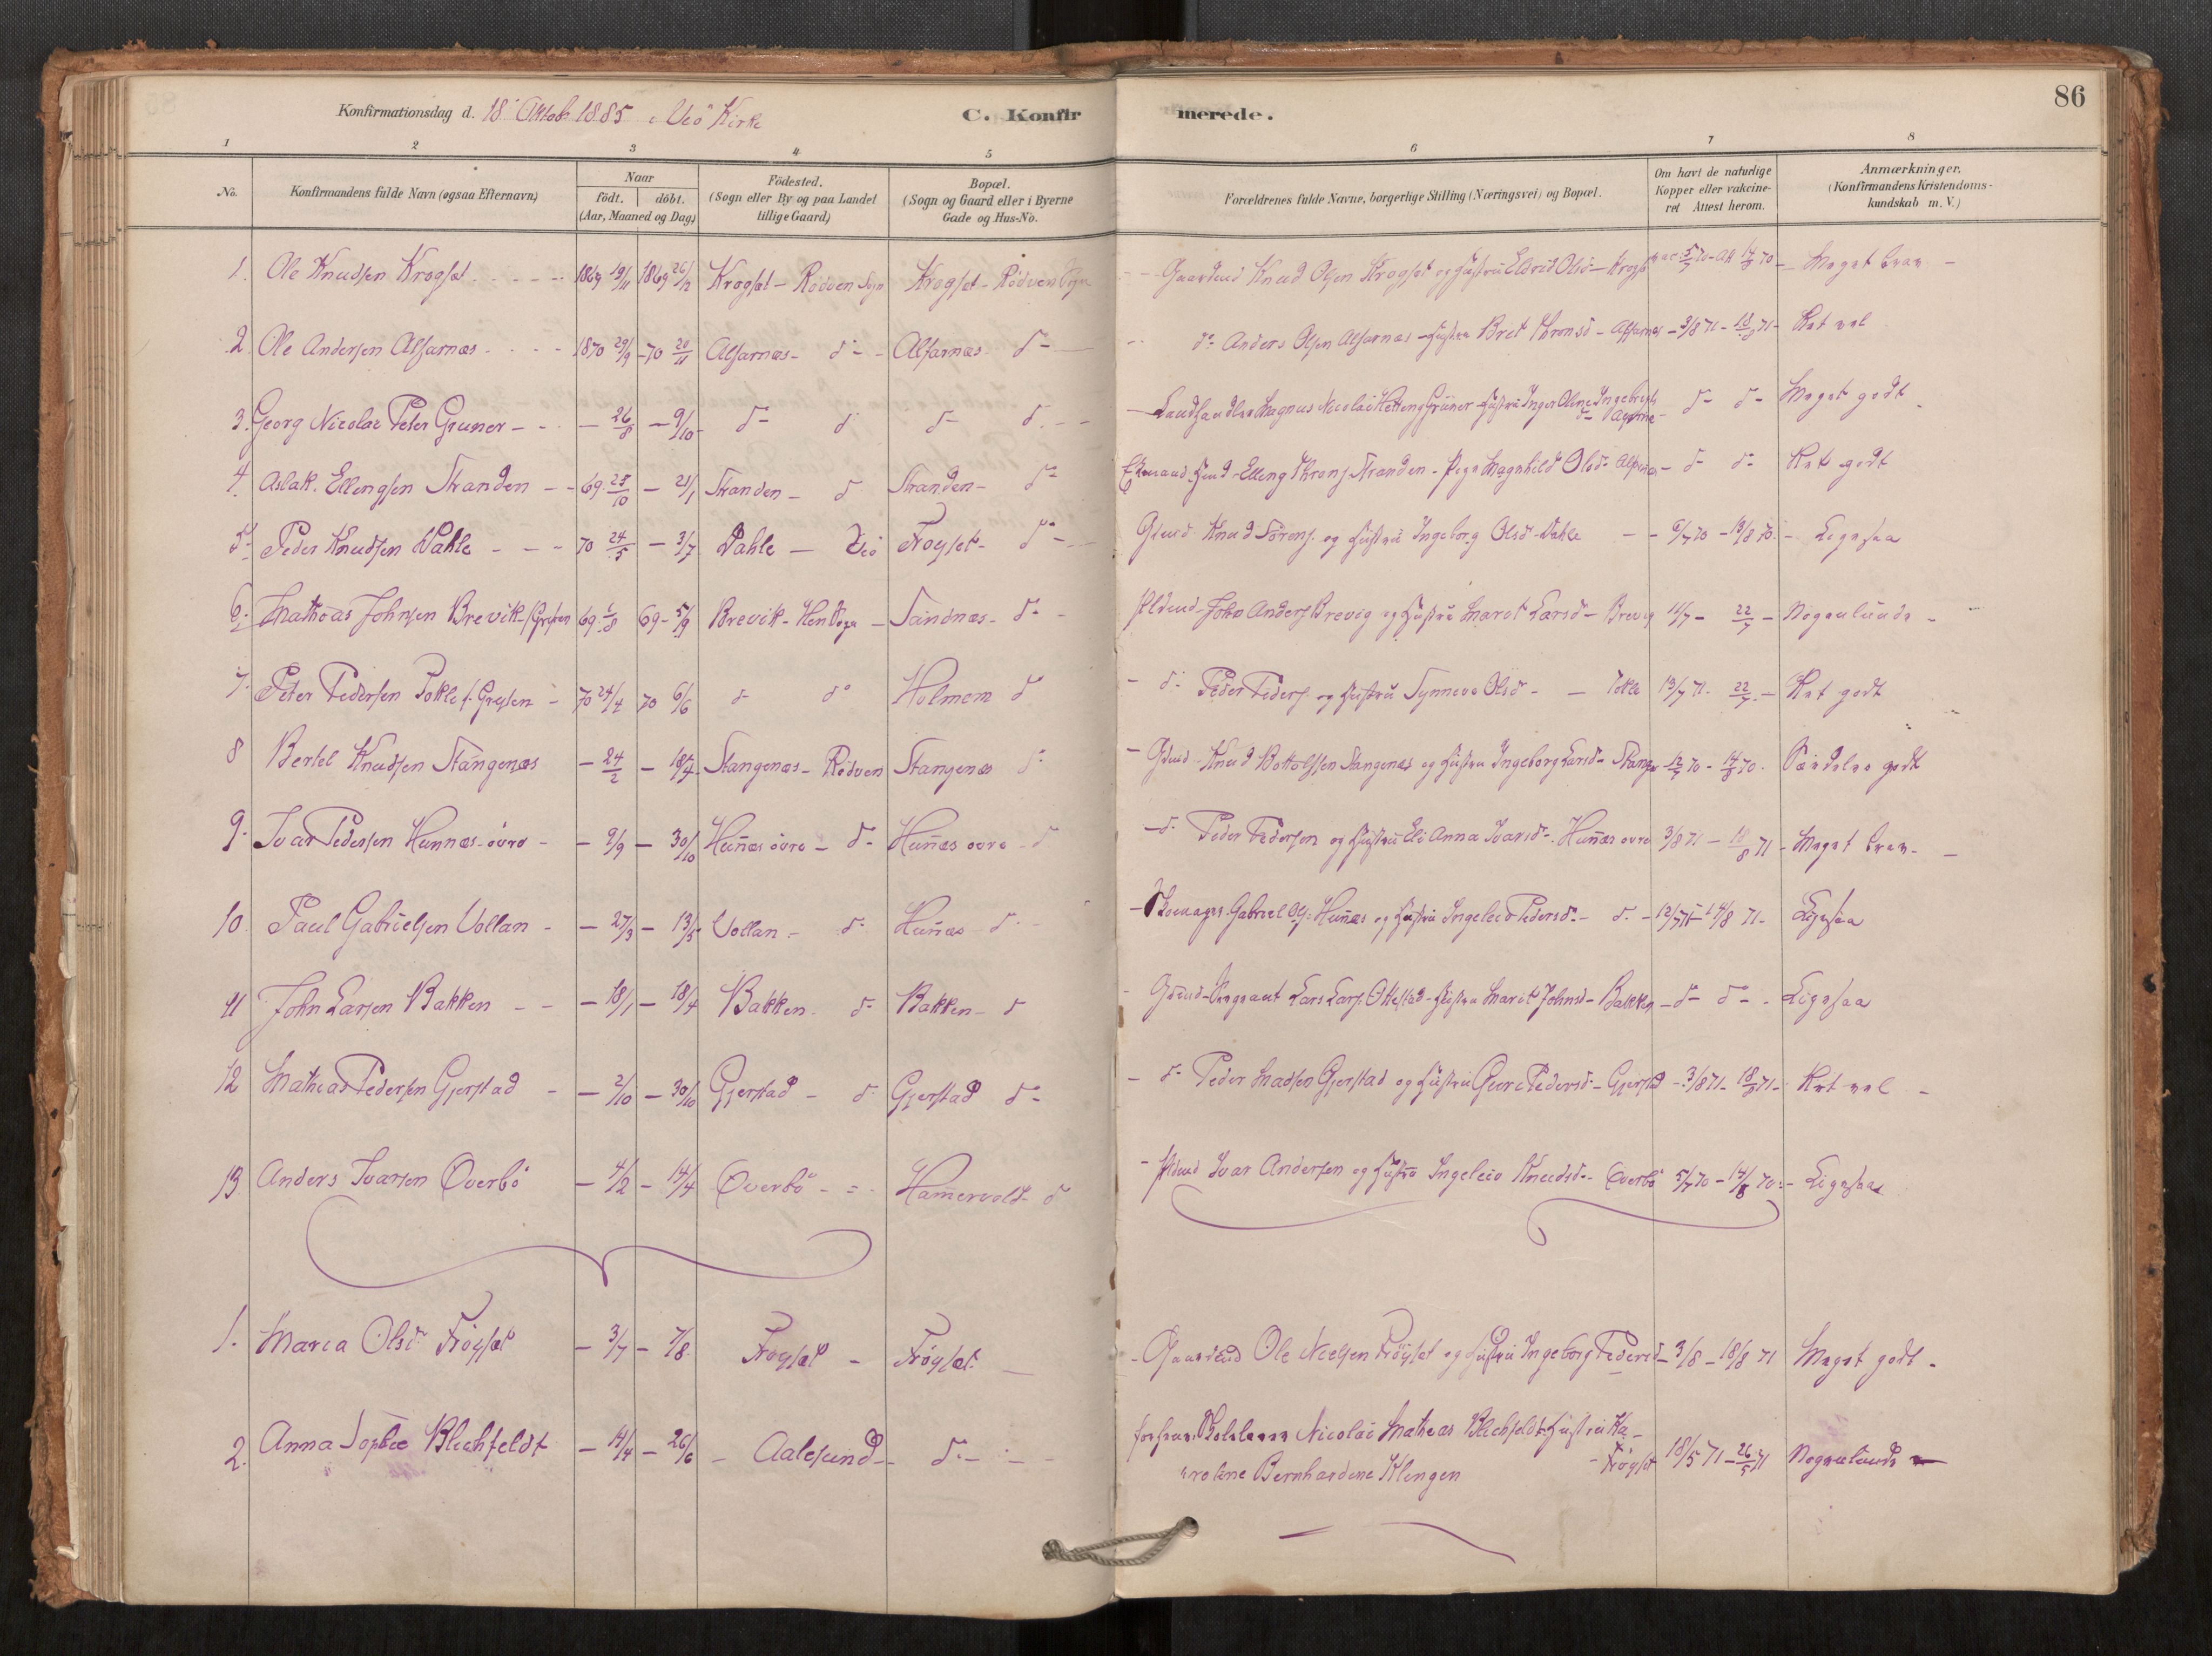 86
Konfirmationsdag d. 18 Oktob 1885 i Veö Kirke
C. Konfirmerede.
1 2 3 4 5 6 7 8
No.
Konfirmandens fulde Navn (ogsaa Efternavn)
Naar
födt. döbt.
(Aar, Maaned og Dag)
Födested.
(Sogn eller By og paa Landet
tillige Gaard)
Bopæl.
(Sogn og Gaard eller i Byerne
Gade og Hus-No.
Forældrenes fulde Navne, borgerlige Stilling (Næringsvei) og Bopæl.
Om havt de naturlige
Kopper eller vakcine-
ret Attest herom.
Anmærkninger.
(Konfirmandens Kristendoms-
kundskab m. V.)
1. Ole Knudsen Krogset 1869 19/11 1869 26/12 Krogset - Rödven Sogn Krogset - Rödven Sogn Gaardmd Knud Olsen Krogset og Hustru Eldrid Olsd - 5/7 70 - Att 14/8 70 - Meget brav -
2 Ole Andersen Alfarnæs 1870 29/9 - 70 20/11 Alfarnæs - d° - Alfarnæs d° - d° Anders Olsen Alfarnæs - Hustru Brit Thronsd - Alfarnæs - 3/8 71 - 18/8 71 - Ret vel
3. Georg Nicolai Peter Gruner - - 26/8 - 9/10 - d° d d° d. - Landhandler Magnus Nicolai Grüner - Hustru Inger Oline Ingebrigts d° - d° - Meget godt
4. Aslak Ellingsen Stranden - 69 25/10 - 21/1 Stranden - d Stranden - d° Elling Throns Stranden - Pige Magnhild Olsd - - d° d° Ret godt
5. Peder Knudsen Dahle - - 70 24/5 - 3/7 Dahle - Veö Fröyset - d° - Gbmd Knud Sörens. og Hustru Ingeborg Olsd - Dahle - 6/7 70 - 13/8 70 - Ligesaa
6. Mathias Johnsen Brevik 69 1/8 69 - 5/9 Brevik - Hen Sogn - Sandnæs - d° - John Anders Brevig og Hustru Marit Larsd - Brevig 11/7 - 22/7 - Nogenlunde -
7. Peter Pedersen Tokle 70 24/4 70 6/6 d° d° Holmem d° - d° Peder Peders. og Hustru Synneve Olsd - - Tokle 13/7 71 - 22/7 - Ret godt
8 Bertel Knudsen Stangenæs - 24/2 - 18/4 - Stangenæs - Rödven Stangenæs d° - Gbmd Knud Bottolfsen Stangenæs og Hustru Ingeborg Larsd - 12/7 70 - 14/8 70. Særdeles godt
9. Ivar Pedersen Hunnæs övre - - 9/9 - 30/10 Hunæs övre - d° - Hunæs övre - d - d° Peder Pedersen og Hustru Eli Anna Ivarsd - Hunæs övre 3/8 71 - 18/8 71 - Meget brav -
10 Paul Gabrielsen Vollan - - 27/3 - 13/5 Vollan - d° Hunæs d° - Skomager Gabriel Ols. Hunæs og Hustru Ingeleiv Pedersd - d° - 12/7 71 - 14/8 71 - Ligesaa
11 John Larsen Bakken - - 18/1 - 18/4 Bakken d° Bakken - d Sergeant Lars Lars. Ottestad - Hustru Marit Johnsd - Bakken - d° - d° - Ligesaa
12 Mathias Pedersen Gjerstad - - 2/10 - 30/10 Gjerstad - d° Gjerstad d° - - d° Peder Madsen Gjerstad og Hustru Guri Pedersd - Gjerstad - 3/8 71 - 18/8 71 - Ret vel -
13 Anders Ivarsen Överbö - 4/2 - 14/4 Överbö - = - Hamervold - d Ivar Andersen og Hustru Ingeleiv Knudsd - Överbö 5/7 70 - 14/8 70 - Ligesaa
1. Maria Olsd Fröyset - 3/7 - 7/8 Fröyset - Fröyset - - Gaardmd Ole Nielsen Fröyset og Hustru Ingeborg Pedersd - 3/8 - 18/8 71 Meget godt -
2. Anna Sophie Blichfeldt - 14/4 - 26/6 - Aalesund - d° - Nicolai Mathias Blichfeldt Hustru Ka-
roline Bernhardine Klingen - Fröyset 18/5 71 - 26/5 71 Nogenlunde -